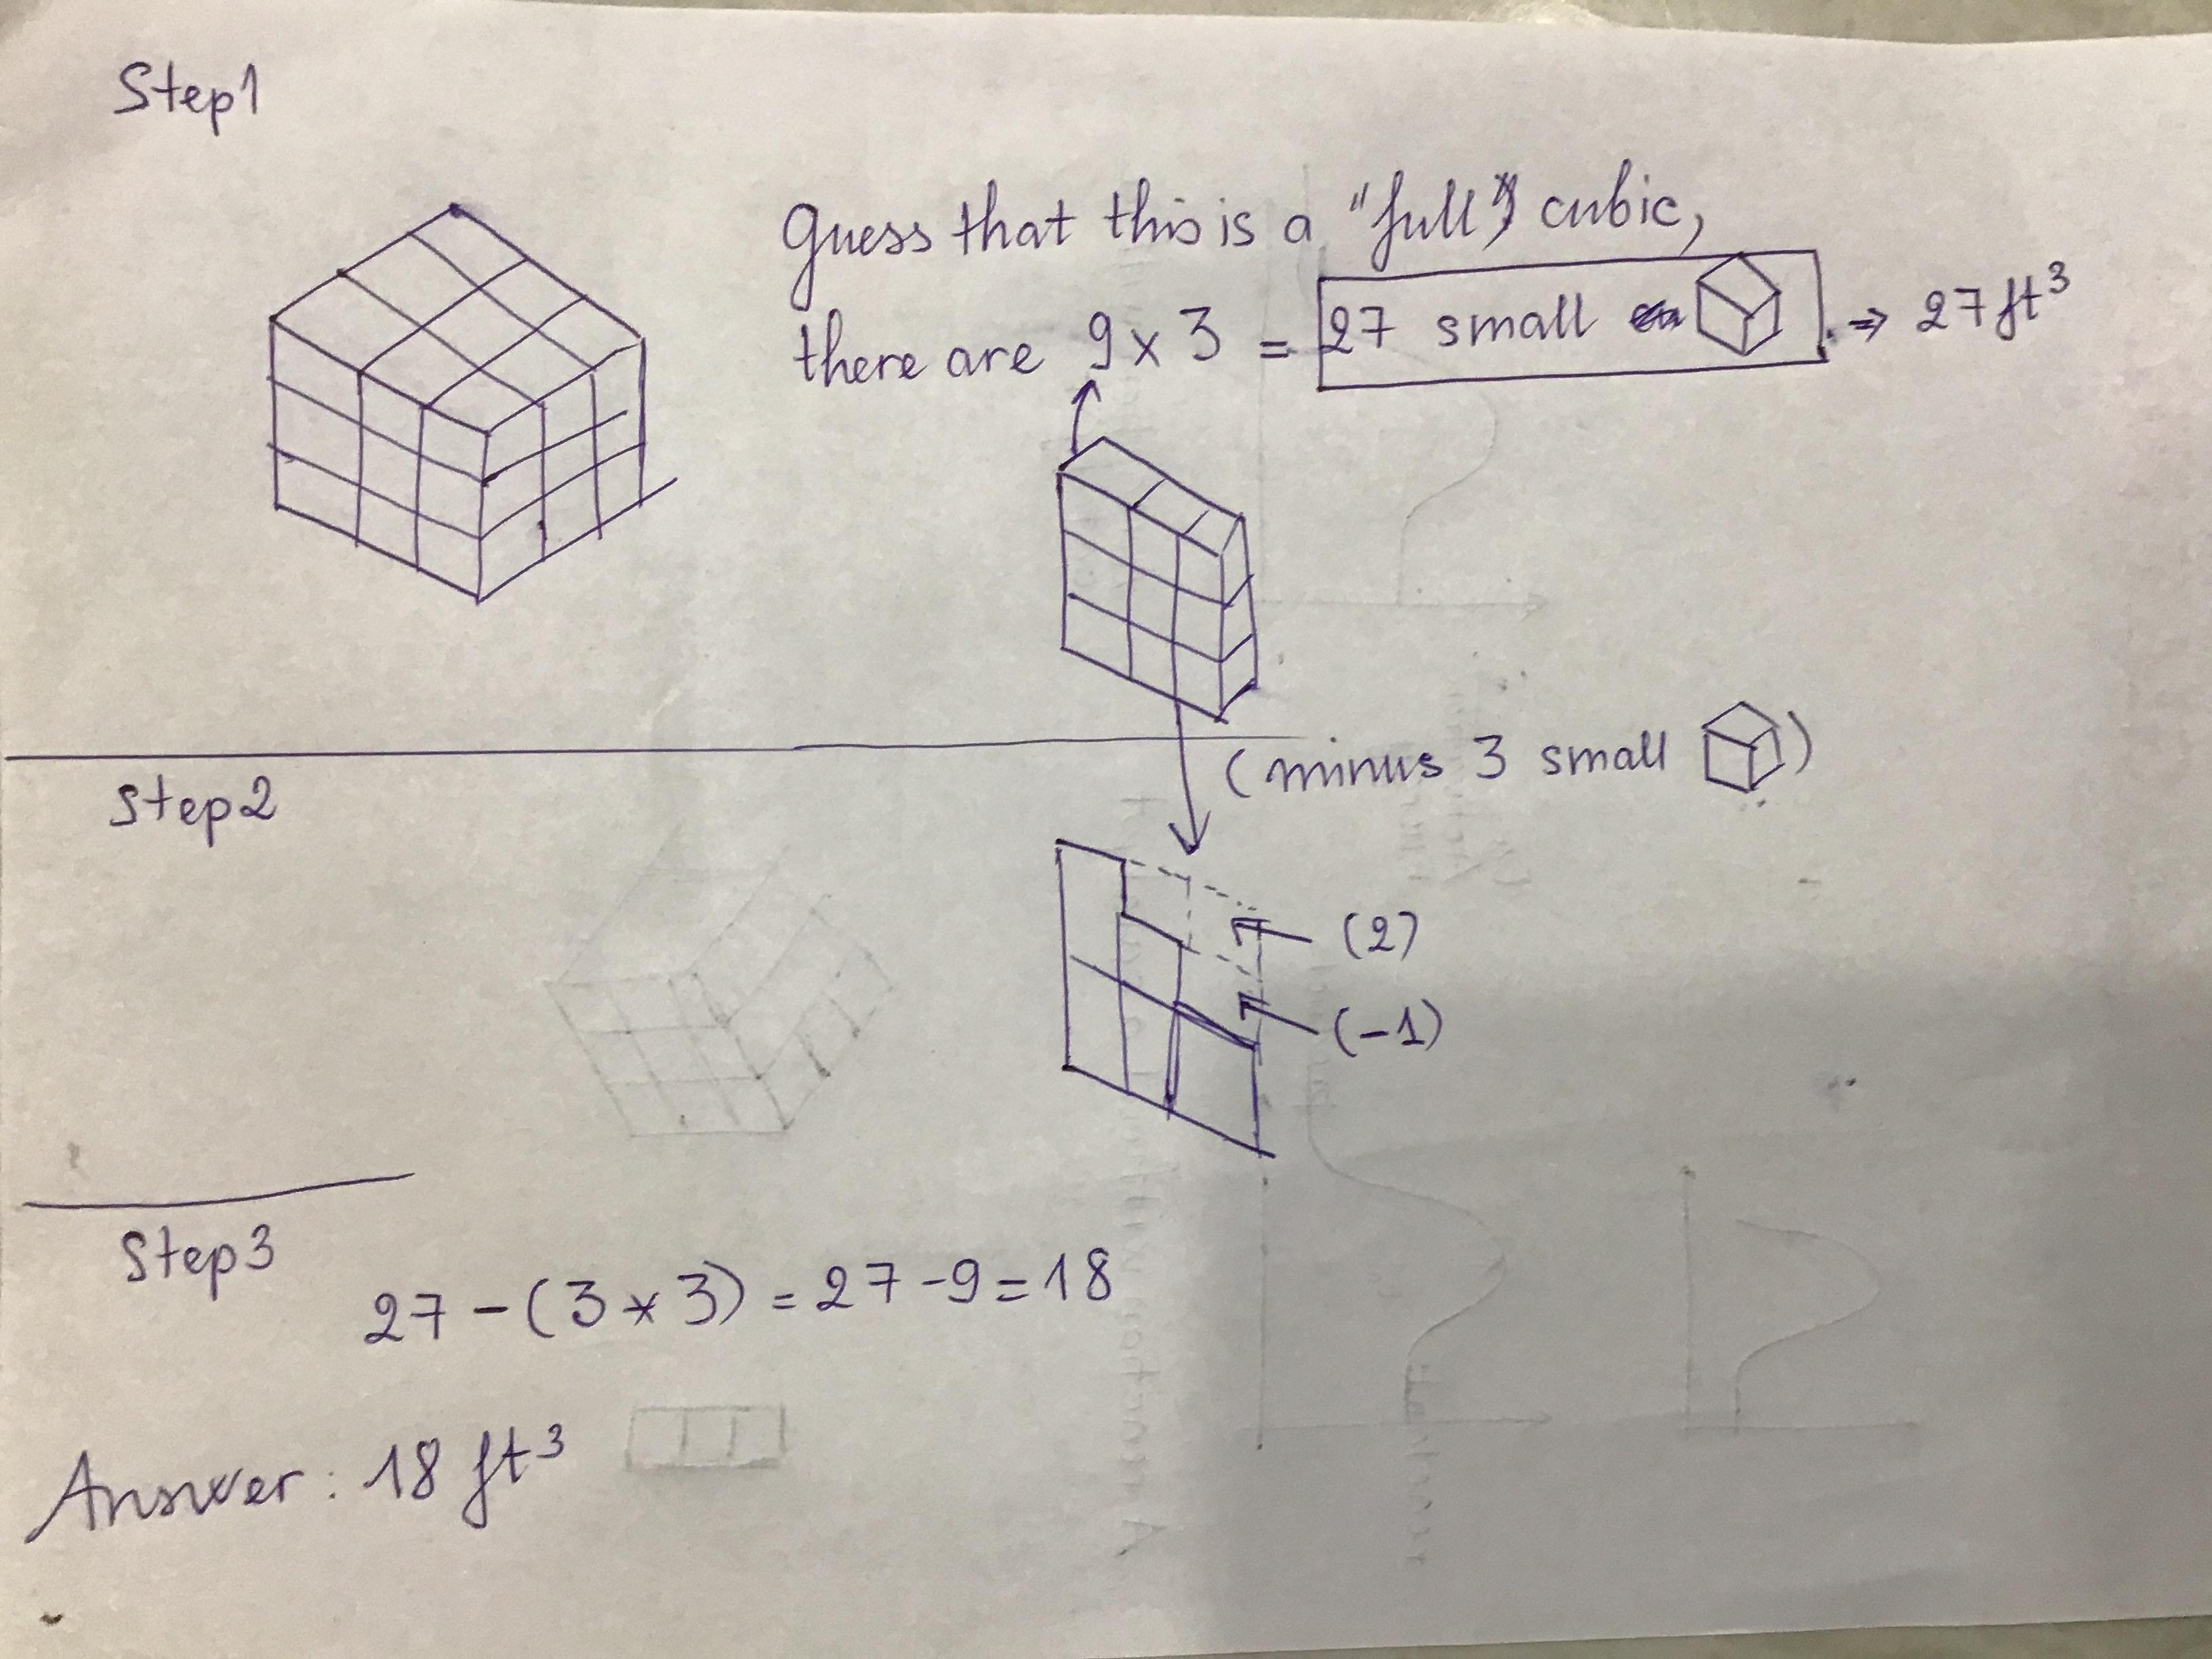 Step1
Guess that this is a "full" cubic,
there are 9 x 3 = 27 small . ⇒ 27 ft³
Step2
(minus 3 small )
(2)
(-1)
Step3
27 - (3 * 3) = 27 - 9 = 18
Answer: 18 ft³